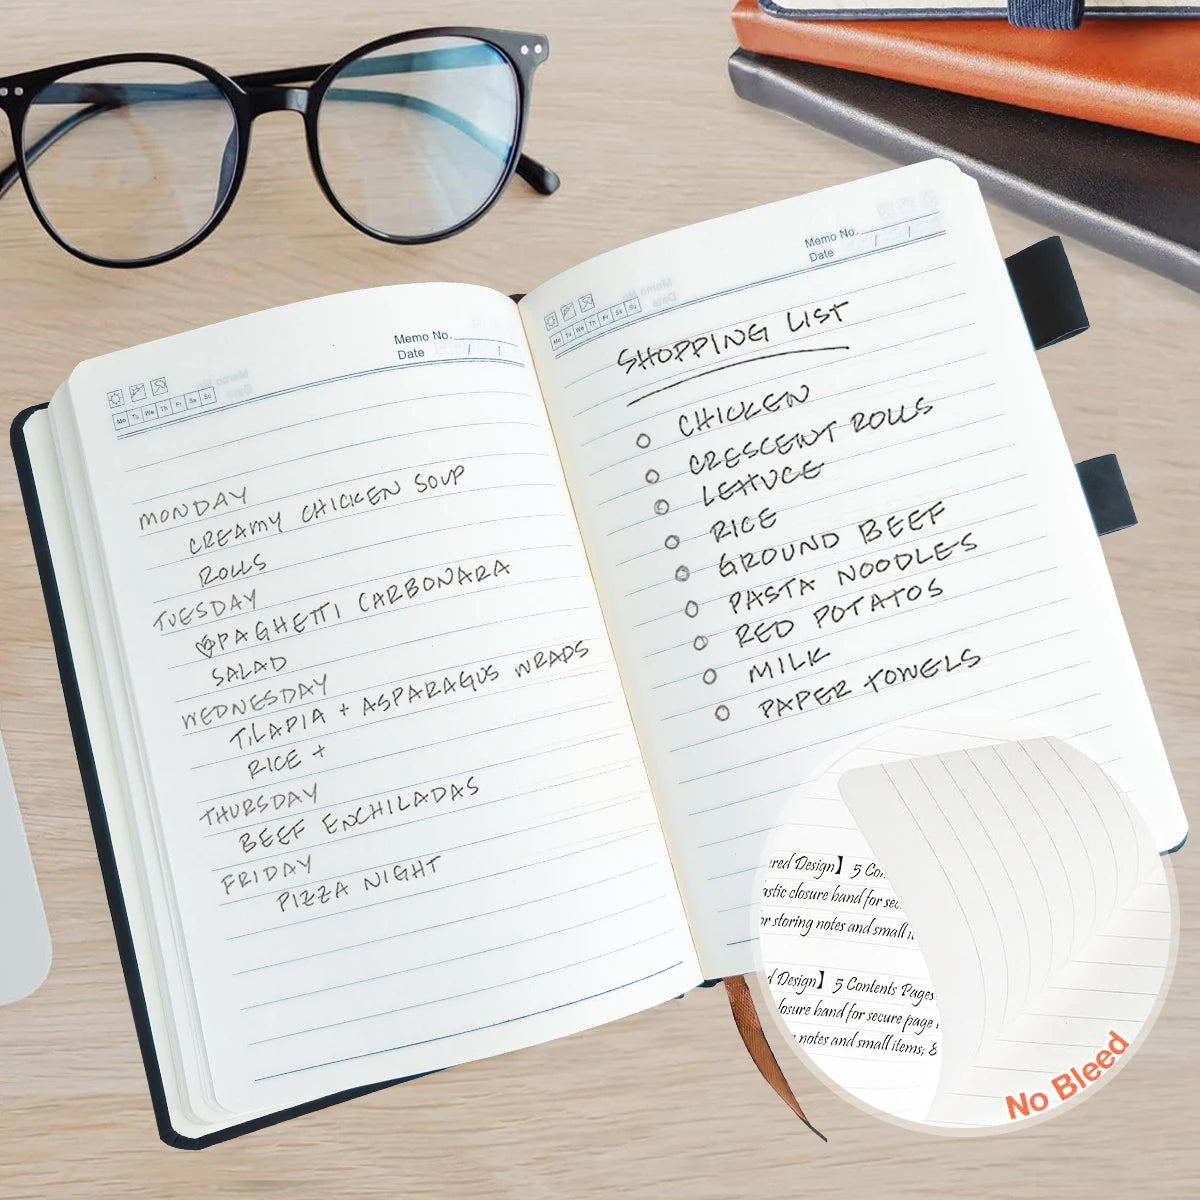 Memo No.
Date / /
Mo Tu We Th Fr Sa Su
MONDAY
CREAMY CHICKEN SOUP
ROLLS
TUESDAY
SPAGHETTI CARBONARA
SALAD
WEDNESDAY
TILAPIA + ASPARAGUS WRAPS
RICE +
THURSDAY
BEEF ENCHILADAS
FRIDAY
PIZZA NIGHT
Memo No.
Date / /
Mo Tu We Th Fr Sa Su
SHOPPING LIST
CHICKEN
CRESCENT ROLLS
LETTUCE
RICE
GROUND BEEF
PASTA NOODLES
RED POTATOS
MILK
PAPER TOWELS
ered Design】 5 Con
astic closure band for sec
or storing notes and small it
d Design】 5 Contents Pages
losure band for secure page
notes and small items; &
No Bleed